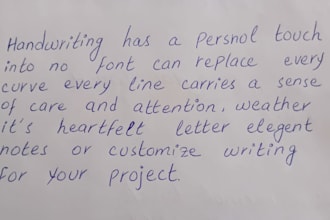 Handwriting has a Persnol touch
into no font can replace every
curve every line carries a sense
of care and attention. weather
it's heartfelt letter elegent
notes or customize writing
for your project.